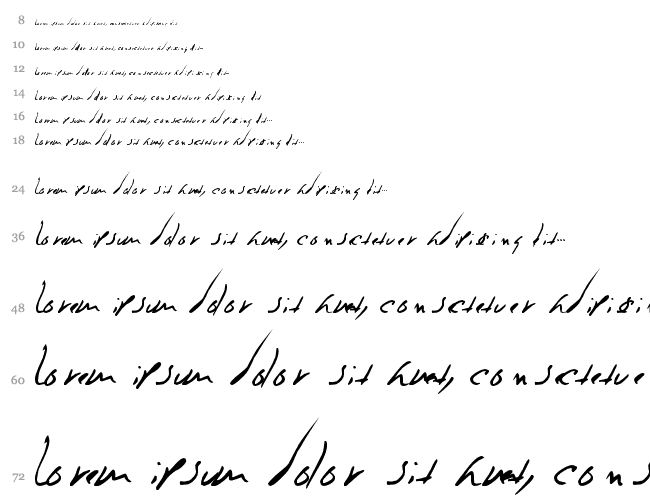 8 lorem ipsum dolor sit amet, consectetuer adipiscing elit...
10 lorem ipsum dolor sit amet, consectetuer adipiscing elit...
12 lorem ipsum dolor sit amet, consectetuer adipiscing elit...
14 lorem ipsum dolor sit amet, consectetuer adipiscing elit
16 lorem ipsum dolor sit amet, consectetuer adipiscing elit...
18 lorem ipsum dolor sit amet, consectetuer adipiscing elit...
24 lorem ipsum dolor sit amet, consectetuer adipiscing elit...
36 lorem ipsum dolor sit amet, consectetuer adipiscing elit...
48 lorem ipsum dolor sit amet, consectetuer adipiscin
60 lorem ipsum dolor sit amet, consectetue
72 lorem ipsum dolor sit amet, cons